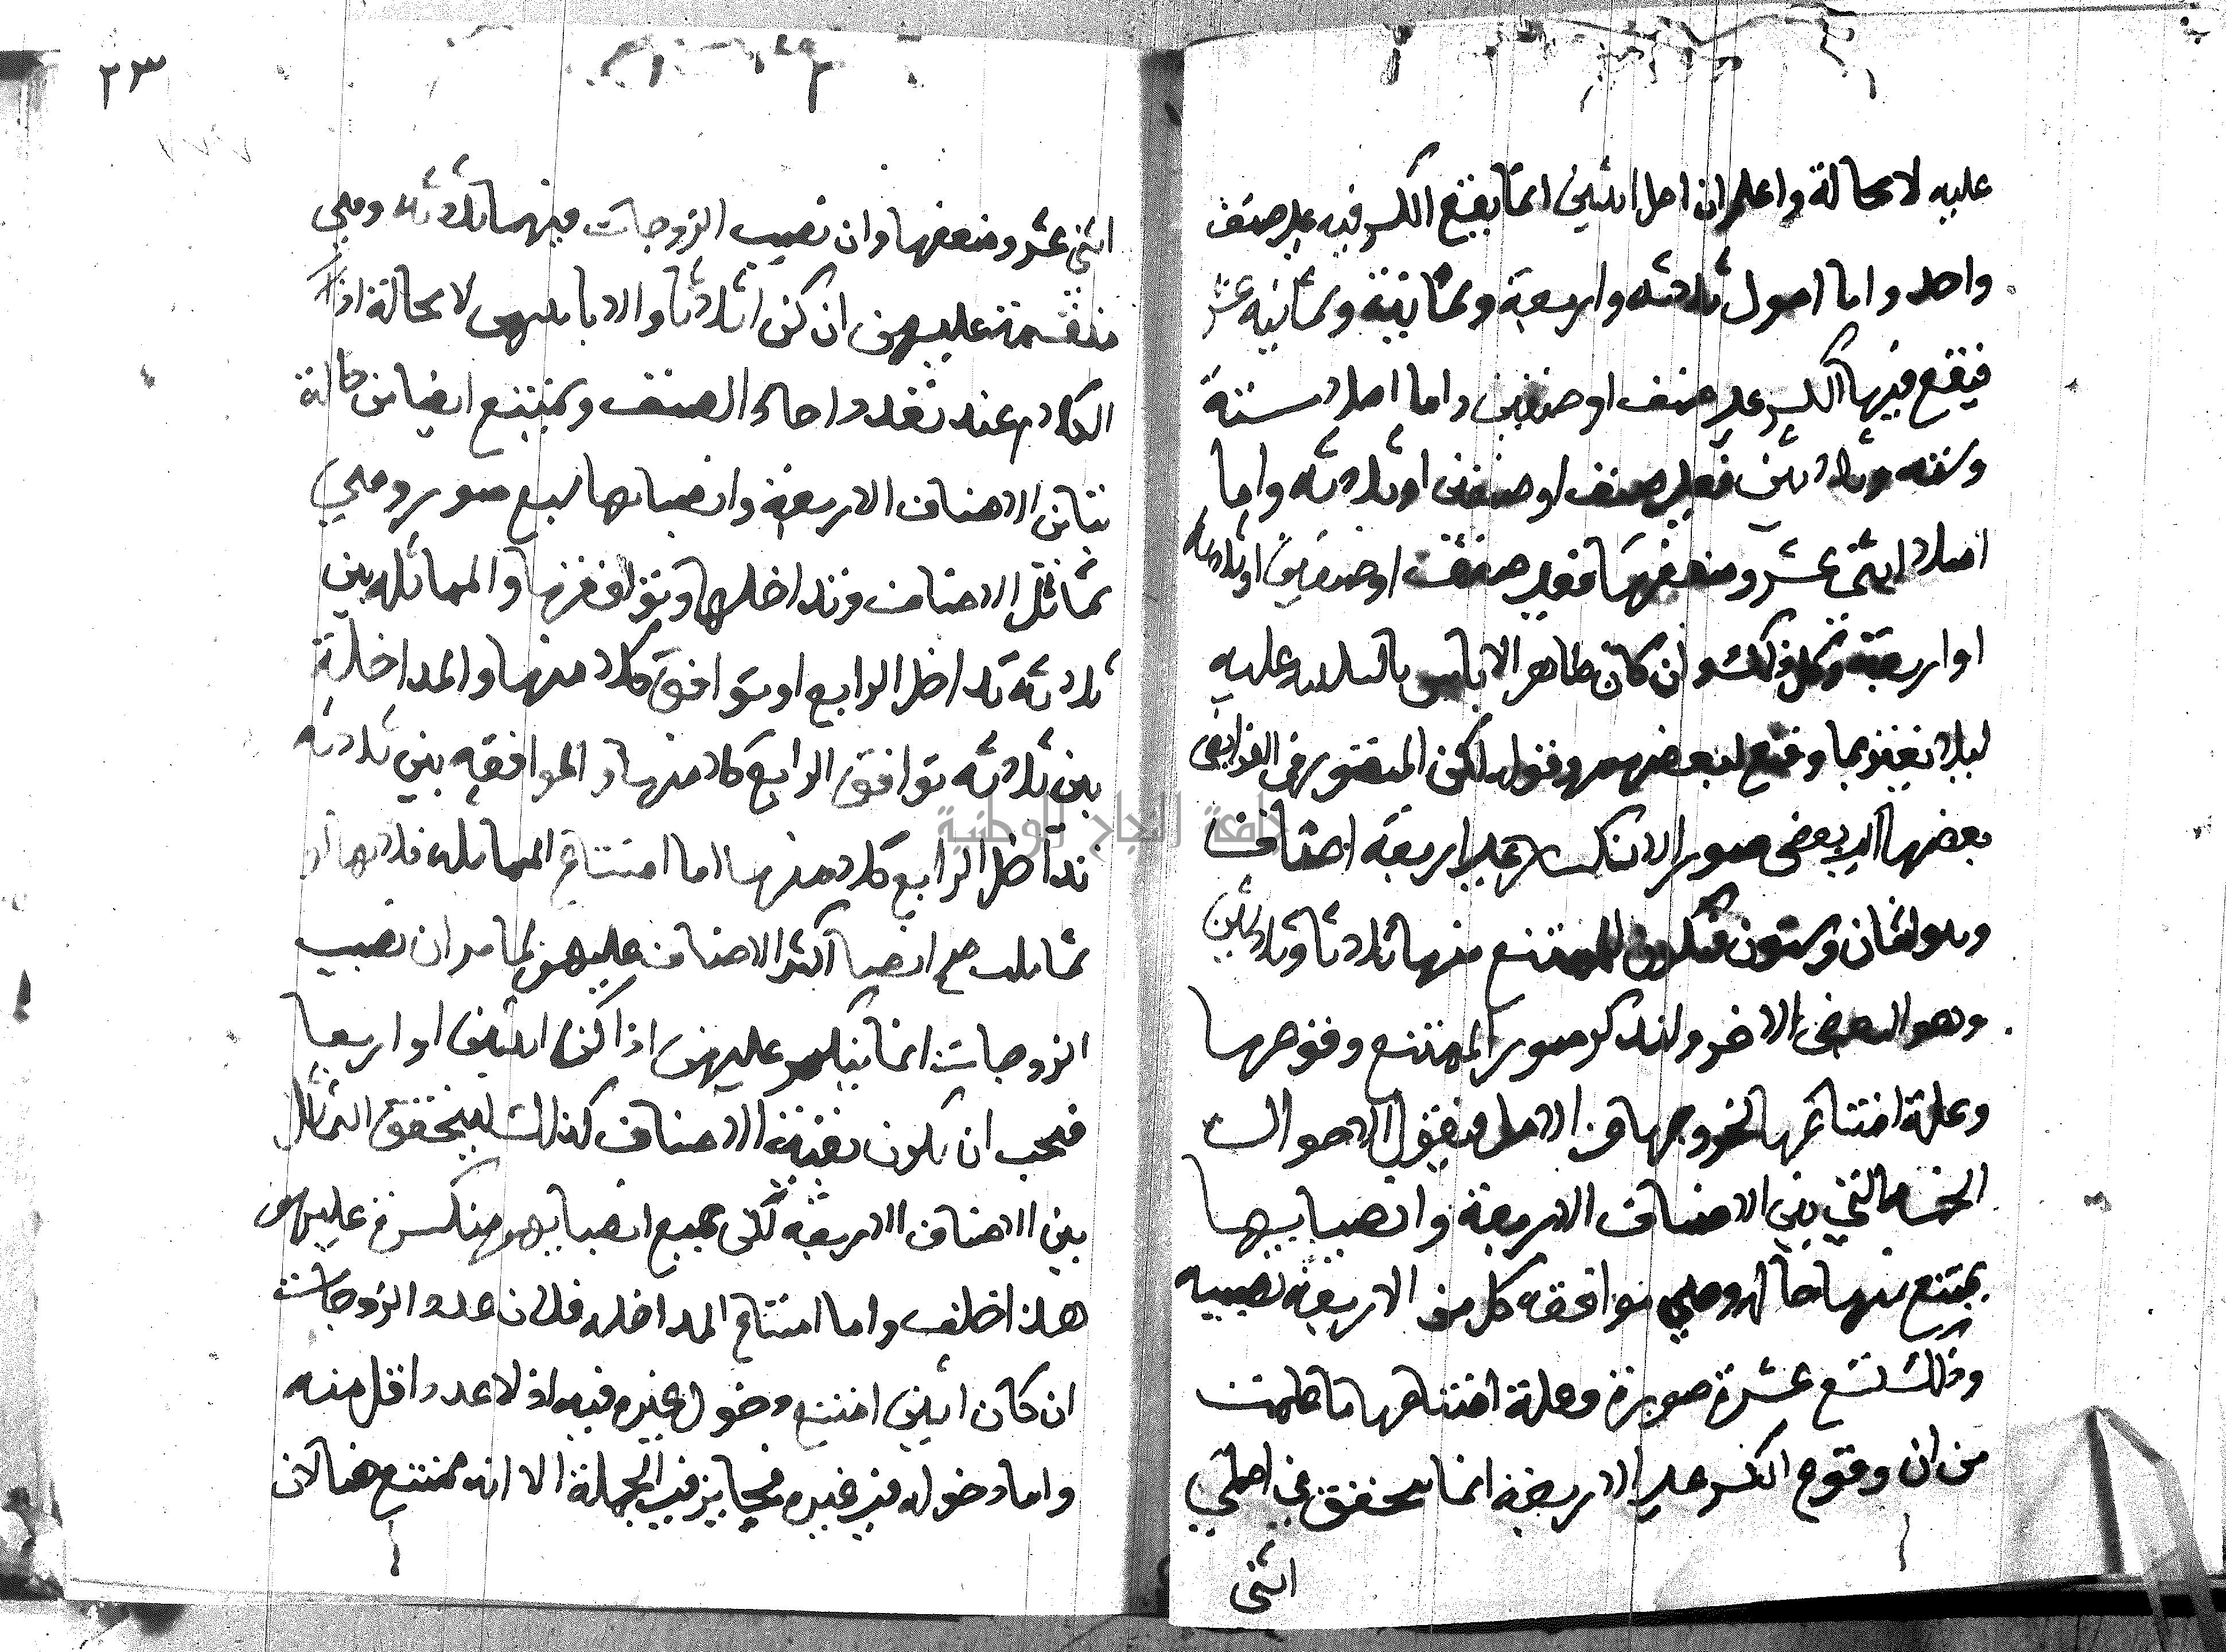 عليه لا محالة واعلم ان اصل اثنين انما يقع الكسر فيه على صنف
واحد واما اصول ثلاثة واربعة وثمانية وثمانية عشر
فيقع فيها الكسر على صنف او صنفين واما اصلا ستة
وستة وثلاثين فعلى صنف او صنفين او ثلاثة واما
اصلا اثنى عشر وضعفها فعلى صنف او صنفين او ثلاثة
او اربعة وكل ذلك وان كان ظاهر الا باس بالتنبيه عليه
ليلا تغتر بما وقع لبعضهم ونقول لكن المتصور في الفرايض
بعضها اى بعض صور الانكسار على اربعة اصناف
وهو اثنان وستون فيكون الممتنع منها ثلاثا وثلاثين
وهو البعض الاخر ولنذكر صور الممتنع ونوضحها
وعلة امتناعها لخروجها من الاصل فنقول الاحوال
الخمسة التي بين الاصناف الاربعة وانصبايها
يمتنع منها حالة وهي موافقة كل من الاربعة نصيبه
وذلك تسع عشرة صورة وعلة امتناعها ما علمت
من ان وقوع الكسر على الاربعة انما يتحقق في اصلي
اثنى
٢٣
اثنى عشر وضعفها وان نصيب الزوجات فيهما ثلاثة وهي
منقسمة عليهن ان كن ثلاثا والا باينهن لا محالة اذ
الكلام عند تعدد احاد الصنف ويمتنع ايضا من حالة
تباين الاصناف الاربعة وانصبائها سبع صور وهي
تماثل الاصناف وتداخلها وتوافقها والمماثلة بين
ثلاثة تداخل الرابع او توافق كلا منها والمداخلة
بين ثلاثة توافق الرابع كلا منها والموافقة بين ثلاثة
تداخل الرابع كلا منها اما امتناع المماثلة فلانها
تماثلت مع انصبا اكثر الاصناف عليهن لما مر ان نصيب
الزوجات انما ينكسر عليهن اذا كن اثنين او اربعا
فيجب ان يكون بقية الاصناف كذلك ليتحقق التماثل
بين الاصناف الاربعة لكن جميع انصبايهم منكسرة عليهن
هذا خلف واما امتناع المداخله فلان عدد الزوجات
ان كان اثنين امتنع دخول غيره فيه اذ لا عدد اقل منه
واما دخوله في غيره فجايز في الجملة الا انه ممتنع هنا لان
جامعة النجاح الوطنية